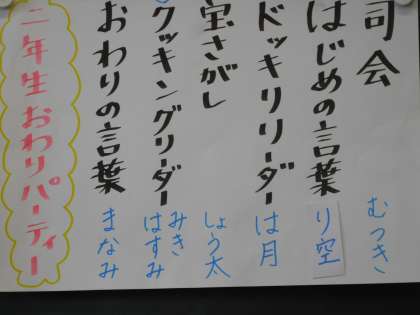 司会 むつき
はじめの言葉 り空
ドッキリリーダー は月
宝さがし しょう太
クッキングリーダー みき はすみ
おわりの言葉 まなみ
二年生おわりパーティー